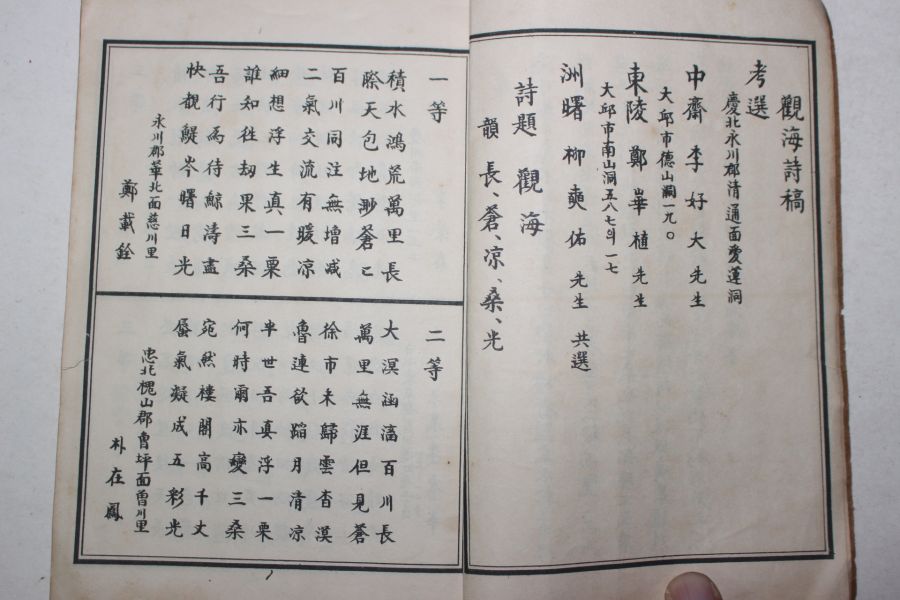 觀海詩稿
考選
慶北永川郡清通面愛蓮洞
中齋 李好大 先生
大邱市德山洞一九〇
東陵 鄭崋植 先生
大邱市南山洞五八七의一七
洲曙 柳奭佑 先生 共選
詩題 觀海
韻 長、蒼、凉、桑、光
一等
積水鴻荒萬里長
際天包地渺蒼〻
百川同注無增减
二氣交流有暖凉
細想浮生真一粟
誰知往劫果三桑
吾行為待鯨濤盡
快覩鯷岑曙日光
永川郡華北面慈川里
鄭載銓
二等
大溟涵滀百川長
萬里無涯但見蒼
徐市未歸雲杳漠
魯連欲蹈月清凉
半世吾真浮一粟
何時爾亦變三桑
宛然樓閣高千丈
蜃氣凝成五彩光
忠北槐山郡曾坪面曾川里
朴在鳳